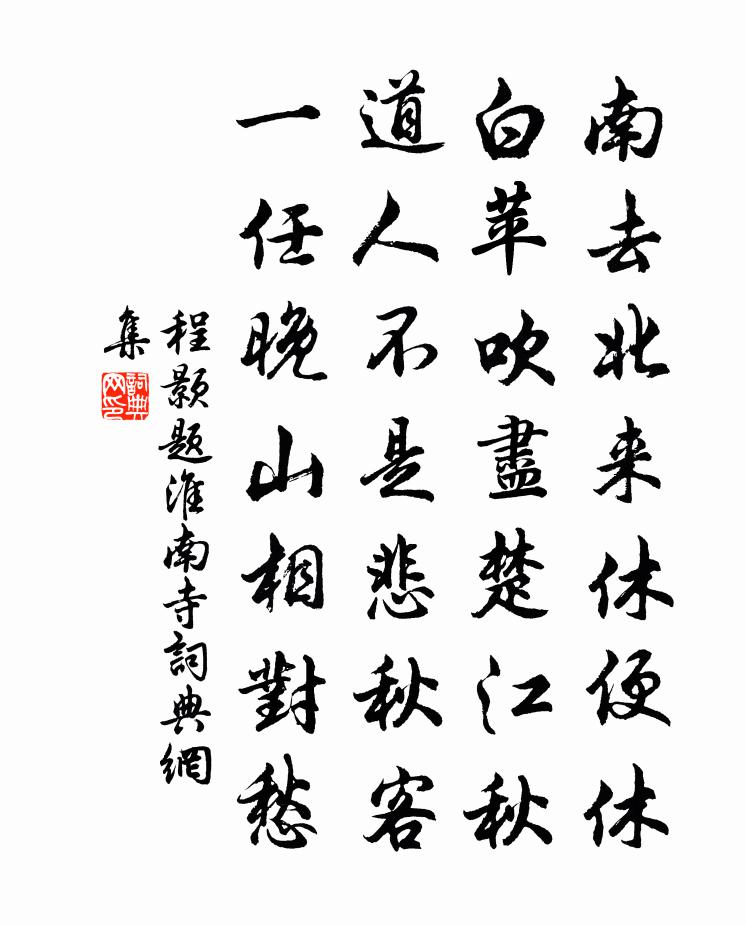 南去北来休便休
白苹吹盡楚江秋
道人不是悲秋客
一任晚山相對愁
程颢题淮南寺詞典網
集
詞典
网印